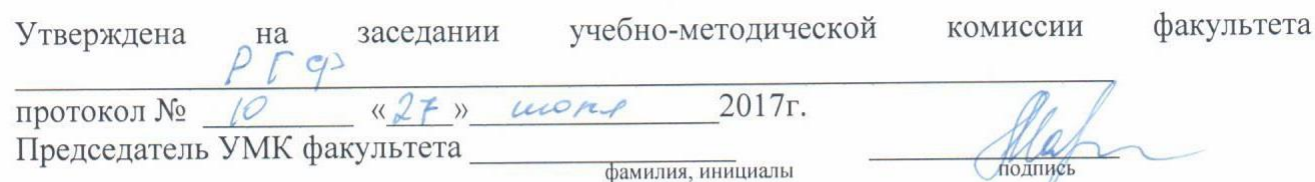 Утверждена на заседании учебно-методической комиссии факультета
РГФ
протокол № 10 «27» июня 2017г.
Председатель УМК факультета
фамилия, инициалы подпись